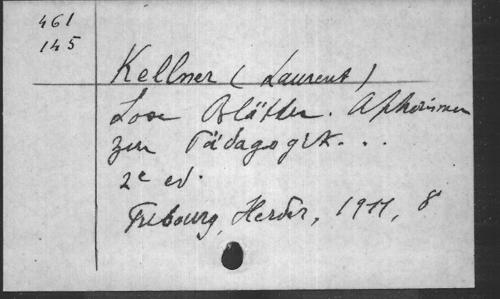 461
145
Kellner (Laurent)
Lose Blätter. Aphorismen
zur Pädagogik...
2e ed.
Fribourg, Herder, 1911, 8